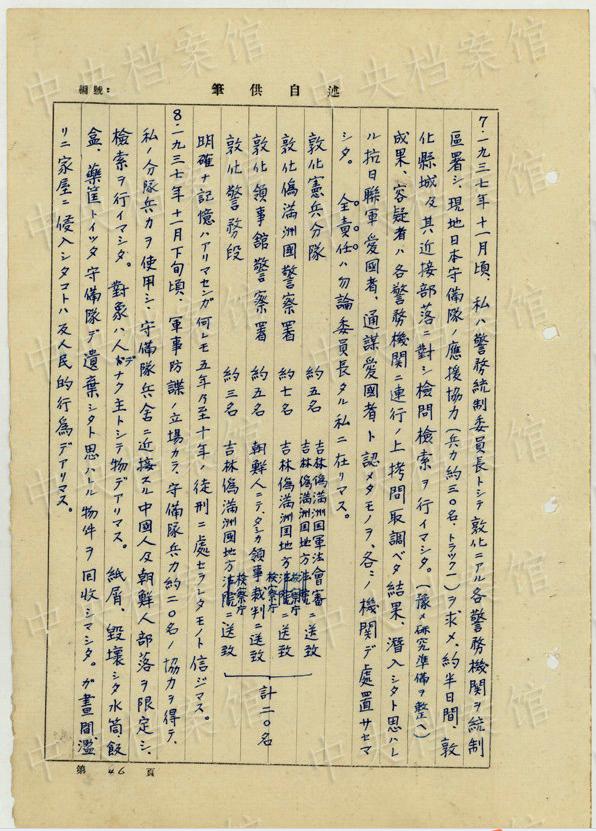 述自供筆
編號：
7.一九三七年十一月頃、私ハ警務統制委員長トシテ敦化ニアル各警務機関ヲ統制
区署シ、現地日本守備隊ノ應援協力(兵力約三〇名・トラック一)ヲ求メ、約半日間、敦
化縣城及其近接部落ニ對シ檢問檢索ヲ行イマシタ。(豫メ研究準備ヲ整ヘ)
成果、容疑者ハ各警務機関ニ連行ノ上拷問取調ベタ結果、潜入シタト思ハレ
ル抗日聯軍愛國者、通謀愛國者ト認メタモノヲ、各〻ノ機関デ處置サセマ
シタ。全責任ハ勿論委員長タル私ニ在リマス。
敦化憲兵分隊 約五名 吉林偽満洲国軍法會審ニ送致 吉林偽満洲国地方檢察庁
敦化偽満洲國警察署 約七名 吉林偽満洲国地方檢察庁ニ送致
敦化領事舘警察署 約五名 朝鮮人ニテ、タシカ領事裁判ニ送致
敦化警務段 約三名 吉林偽満洲國地方檢察庁ニ送致
計二〇名
明確ナ記憶ハアリマセンガ何レモ五年乃至十年ノ徒刑ニ處セラレタモノト信ジマス。
8.一九三七年十一月下旬頃、軍事防諜ノ立場カラ、守備隊兵力約二〇名ノ協力ヲ得テ、
私ノ分隊兵力ヲ使用シ、守備隊兵舎ニ近接スル中國人及朝鮮人部落ヲ限定シ、
檢索ヲ行イマシタ。對象ハ人デナク主トシテ物デアリマス。紙屑、毀壞シタ水筒、飯
盒、藥莢トイッタ守備隊デ遺棄シタト思ハレル物件ヲ回收シマシタ。ガ晝間、濫
リニ家屋ニ侵入シタコトハ反人民的行為デアリマス。
第 46 頁
中央档案馆